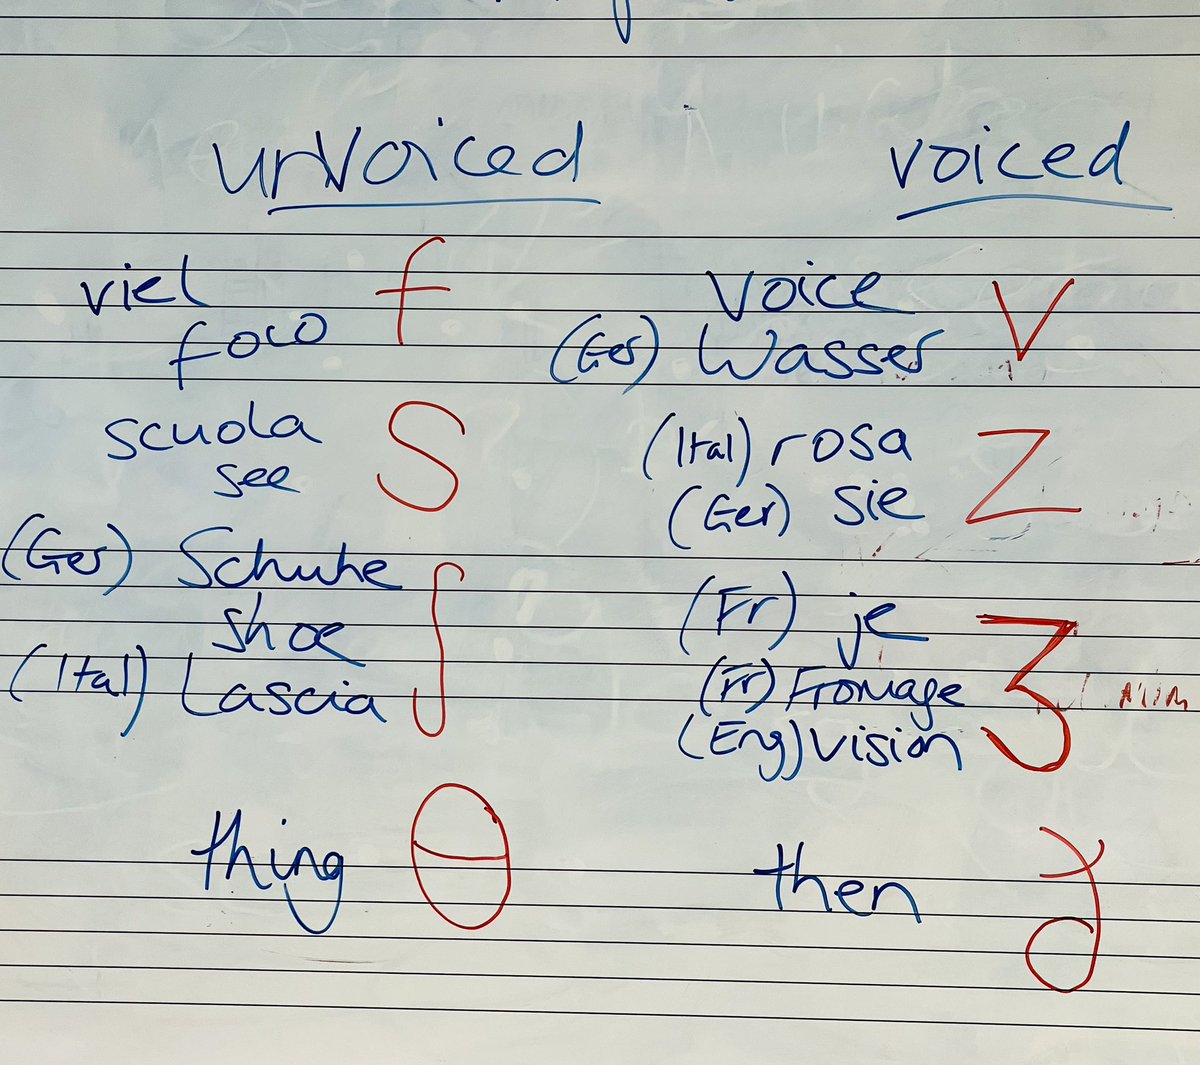 unvoiced voiced
viel f voice v
foco (Ger) Wasser
scuola s (Ital) rosa z
see (Ger) sie
(Ger) Schuhe ʃ (Fr) je ʒ
shoe (Fr) Fromage
(Ital) Lascia (Eng) vision
thing θ then ð